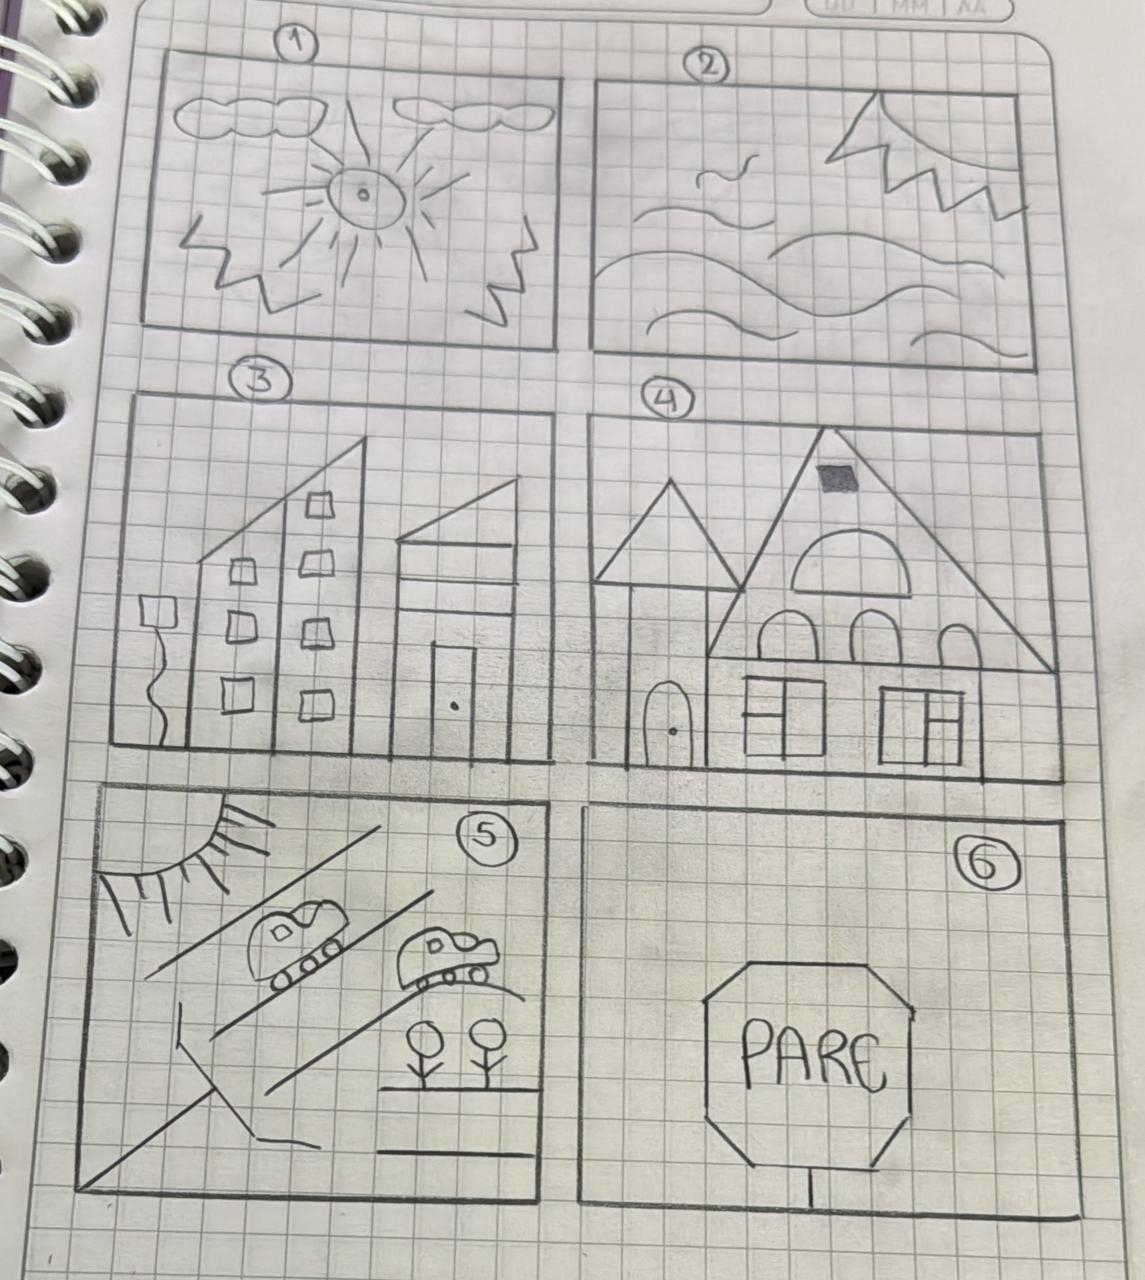 DD MM AA
1
2
3
4
5
6
PARE